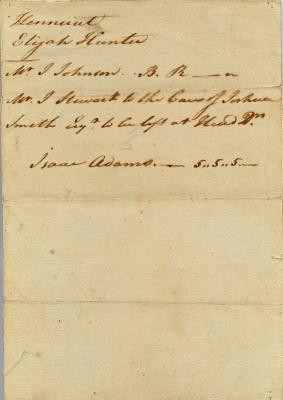 Elijah Hunter
Mr. J Johnson. B. R — a
Mr. J Stewart to the Care of Joshua
Smith Esqr. to be left at Head Qrs
Isaac Adams. — 5.,5.,5 —